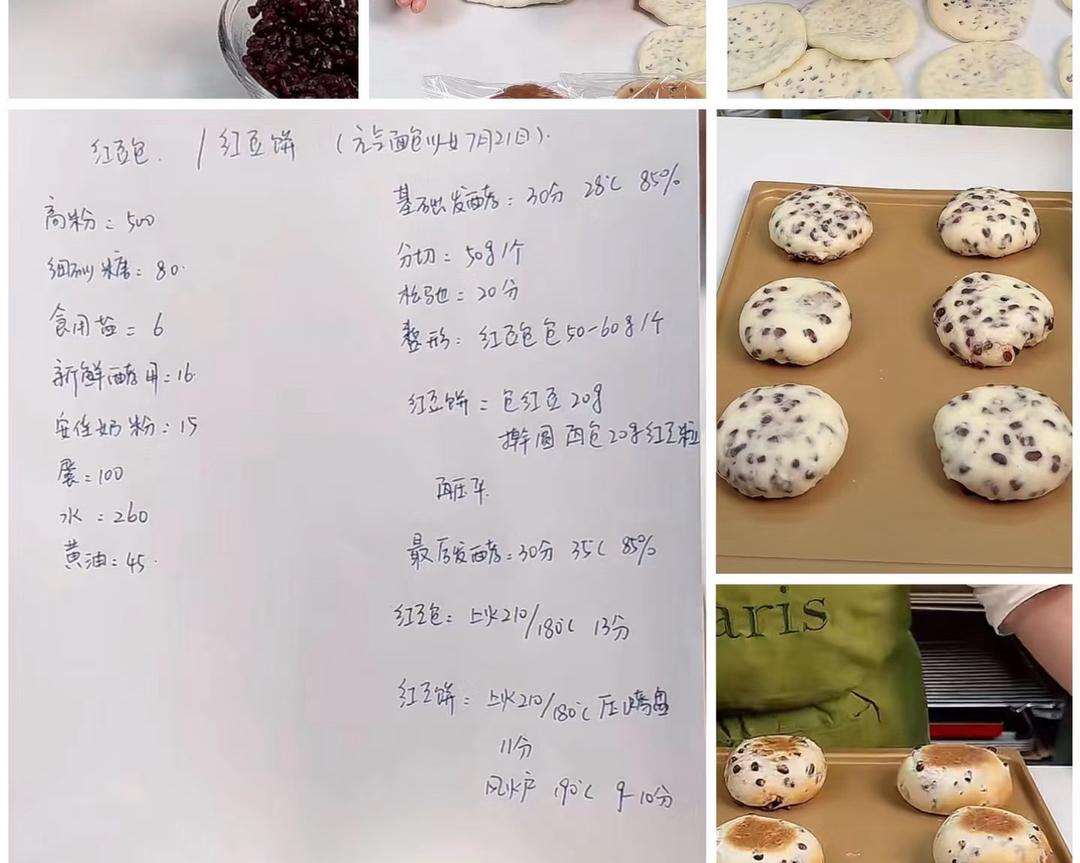 红豆包. / 红豆饼 (元气面包少女7月21日).
高粉: 500
细砂糖: 80.
食用盐: 6
新鲜酵母: 16.
安佳奶粉: 15
蛋: 100
水: 260
黄油: 45.
基础发酵: 30分 28℃ 85%
分切: 50g/个
松弛: 20分
整形: 红豆包包50-60g/个
红豆饼: 包红豆20g
擀圆 再包20g红豆粒
再压平.
最后发酵: 30分 35℃ 85%
红豆包: 上火210/180℃ 13分
红豆饼: 上火210/180℃ 压烤盘
11分
风炉 190℃ 9-10分
aris